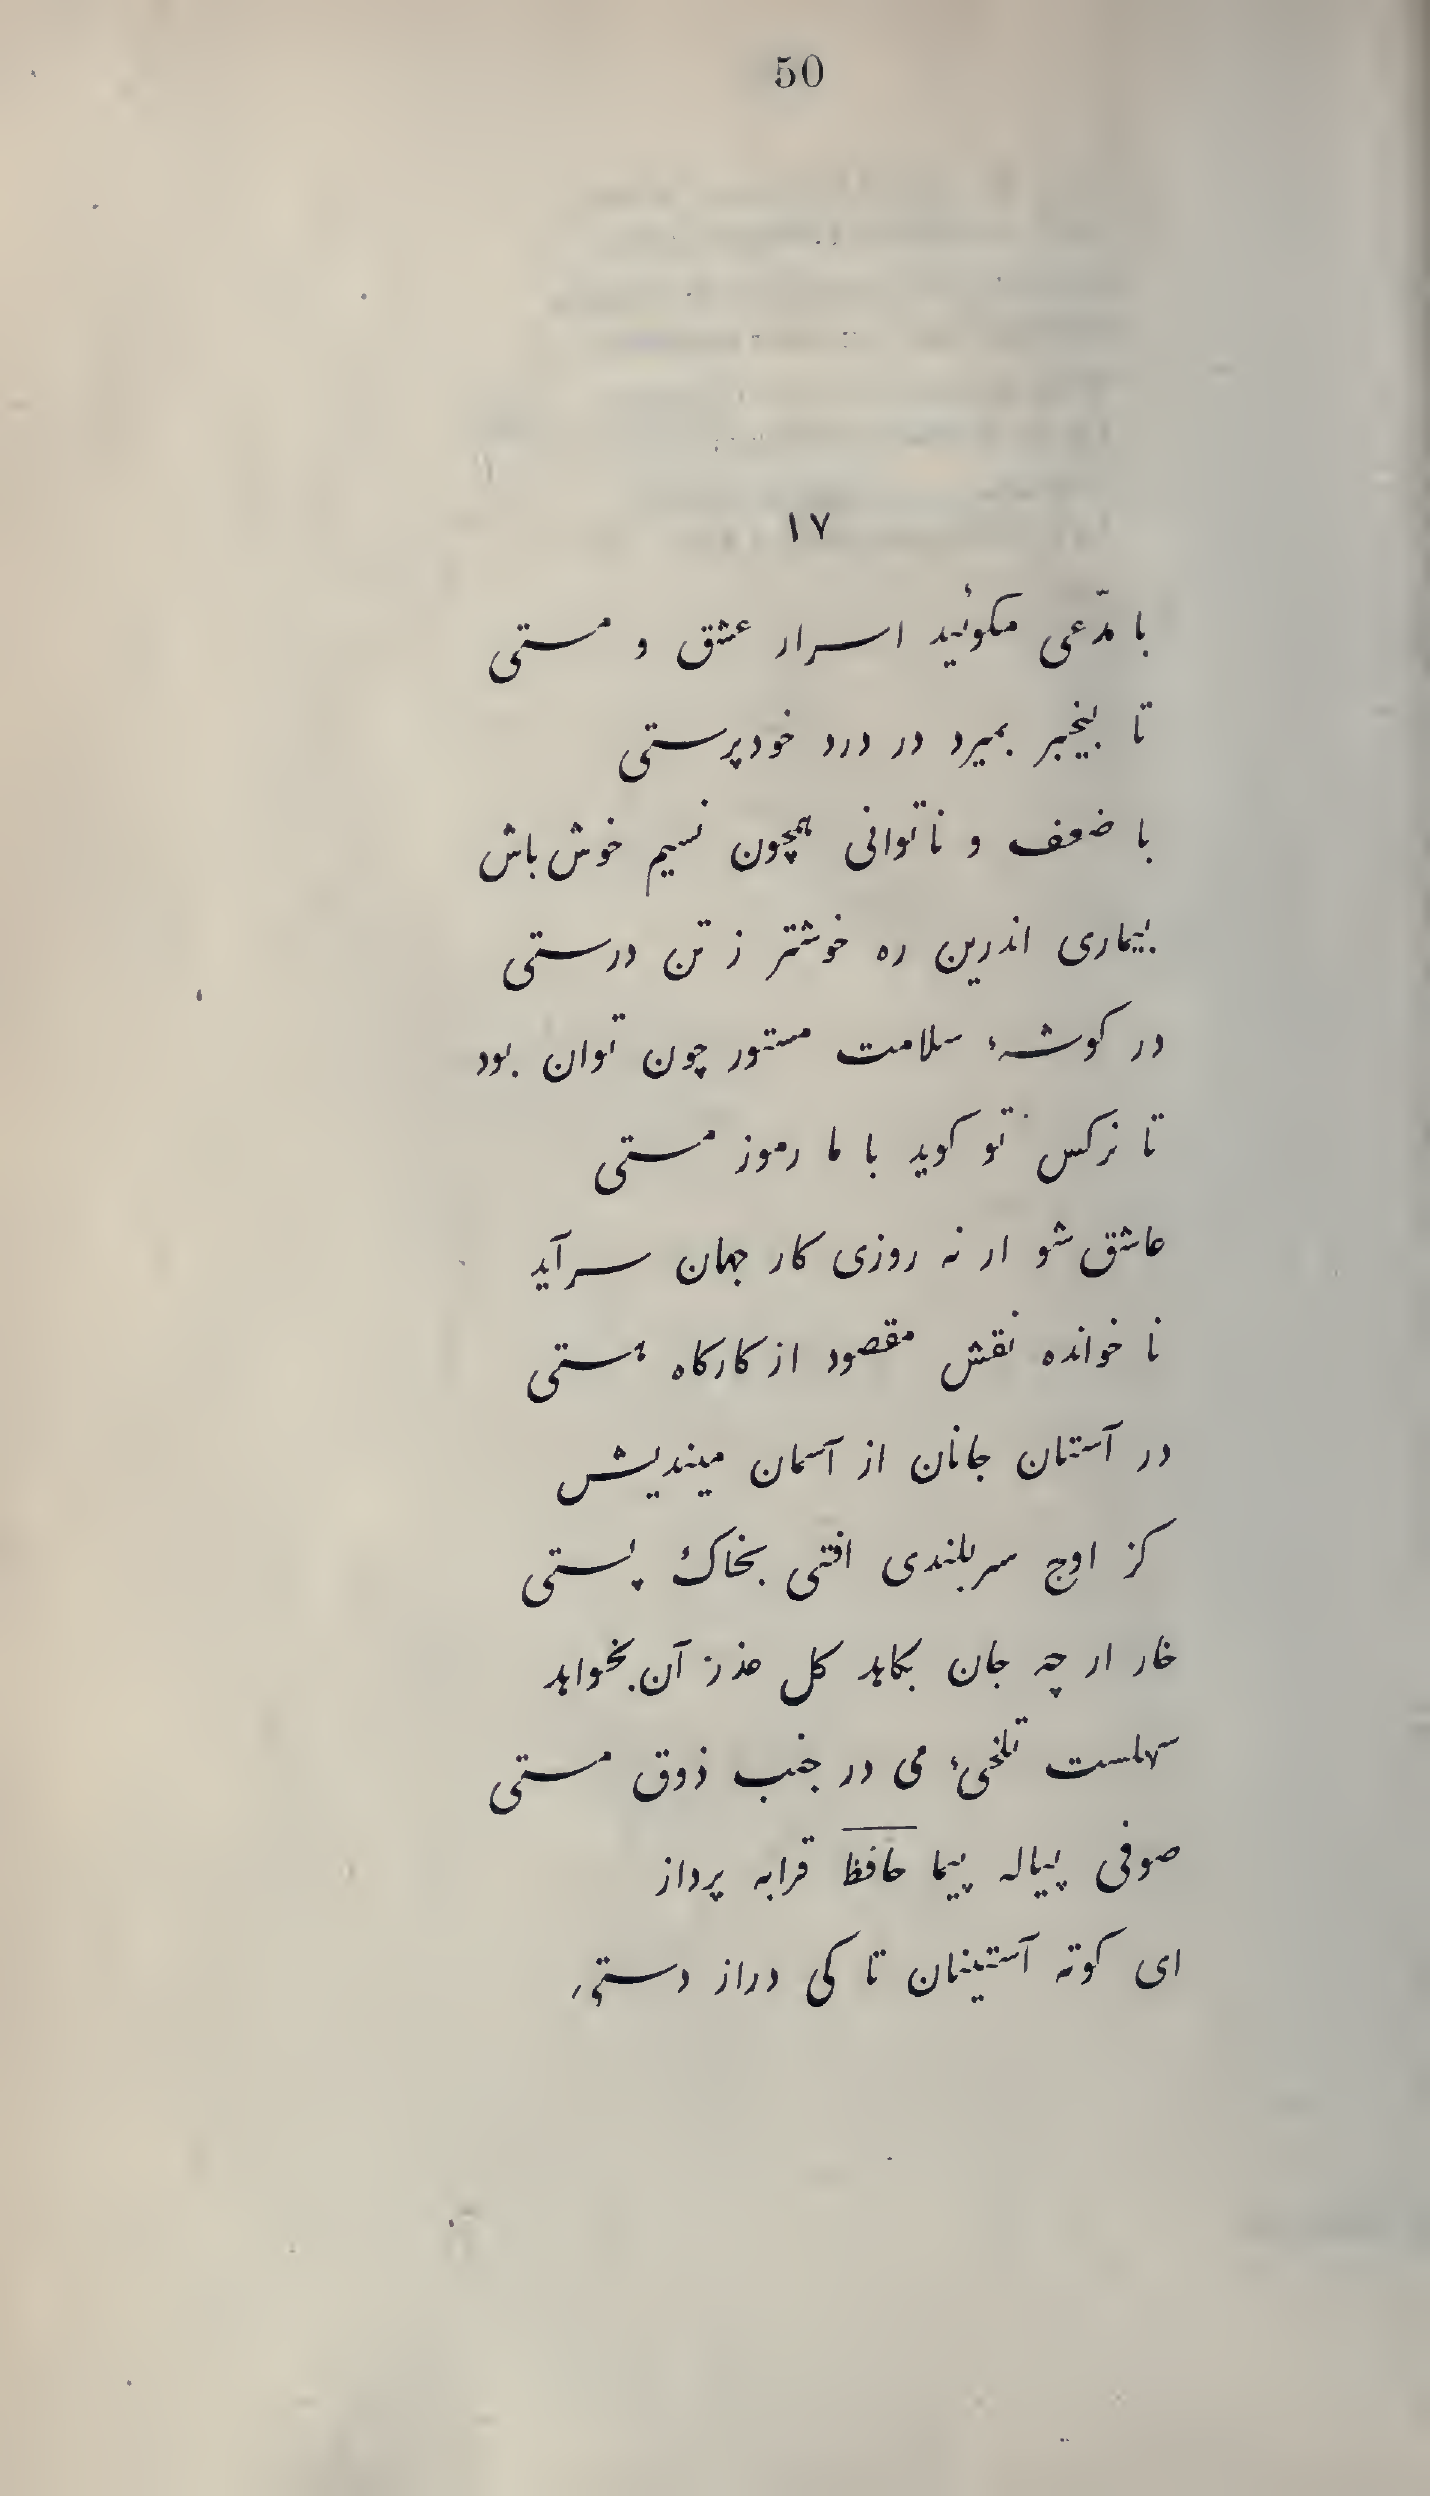 50
١٧
با مدّعی مکوئید اسرار عشق و مستی
تا بیخبر بمیرد در درد خودپرستی
با ضعف و ناتوانی همچون نسیم خوش باش
بیماری اندرین ره خوشتر ز تن درستی
در کوشهٔ سلامت مستور چون توان بود
تا نرکس تو کوید با ما رموز مستی
عاشق شو ار نه روزی کار جهان سر آید
نا خوانده نقش مقصود از کارکاه هستی
در آستان جانان از آسمان میندیش
کز اوج سربلندی افتی بخاک پستی
خار ار چه جان بکاهد کل عذر آن بخواهد
سهلست تلخیٔ می در جنب ذوق مستی
صوفی پیاله پیما حافظ قرابه پرداز
ای کوته آستینان تا کی دراز دستی